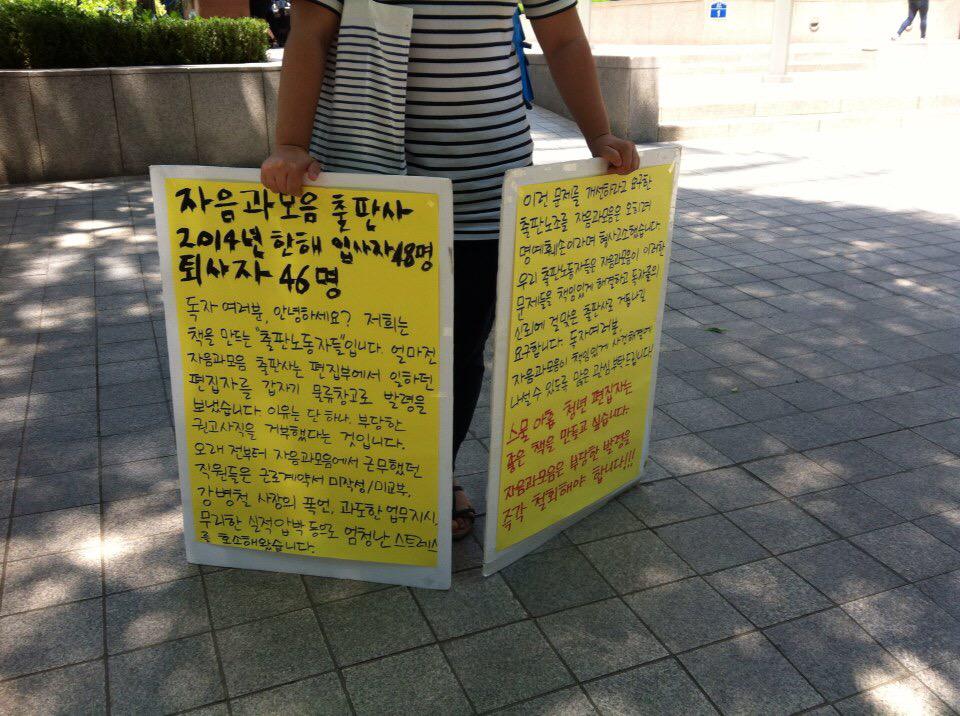 자음과모음 출판사
2014년 한해 입사자 48명
퇴사자 46명
독자 여러분, 안녕하세요? 저희는
책을 만드는 "출판노동자들"입니다. 얼마전
자음과모음 출판사는 편집부에서 일하던
편집자를 갑자기 물류창고로 발령을
보냈습니다. 이유는 단 하나. 부당한
권고사직을 거부했다는 것입니다.
오래 전부터 자음과모음에서 근무했던
직원들은 근로계약서 미작성/미교부,
강병철 사장의 폭언, 과도한 업무지시,
무리한 실적압박 등으로 엄청난 스트레스
를 호소해왔습니다.
이런 문제를 개선하라고 요구한
출판노조를 자음과모음은 오히려
명예훼손이라며 형사고소했습니다.
우리 출판노동자들은 자음과모음이 이러한
문제들을 책임있게 해결하고 독자들의
신뢰에 걸맞은 출판사로 거듭나길
요구합니다. 독자여러분,
자음과모음이 책임있게 사건해결에
나설 수 있도록 많은 관심 부탁드립니다
스물 아홉 청년 편집자는
좋은 책을 만들고 싶습니다.
자음과모음은 부당한 발령을
즉각 철회해야 합니다!!!